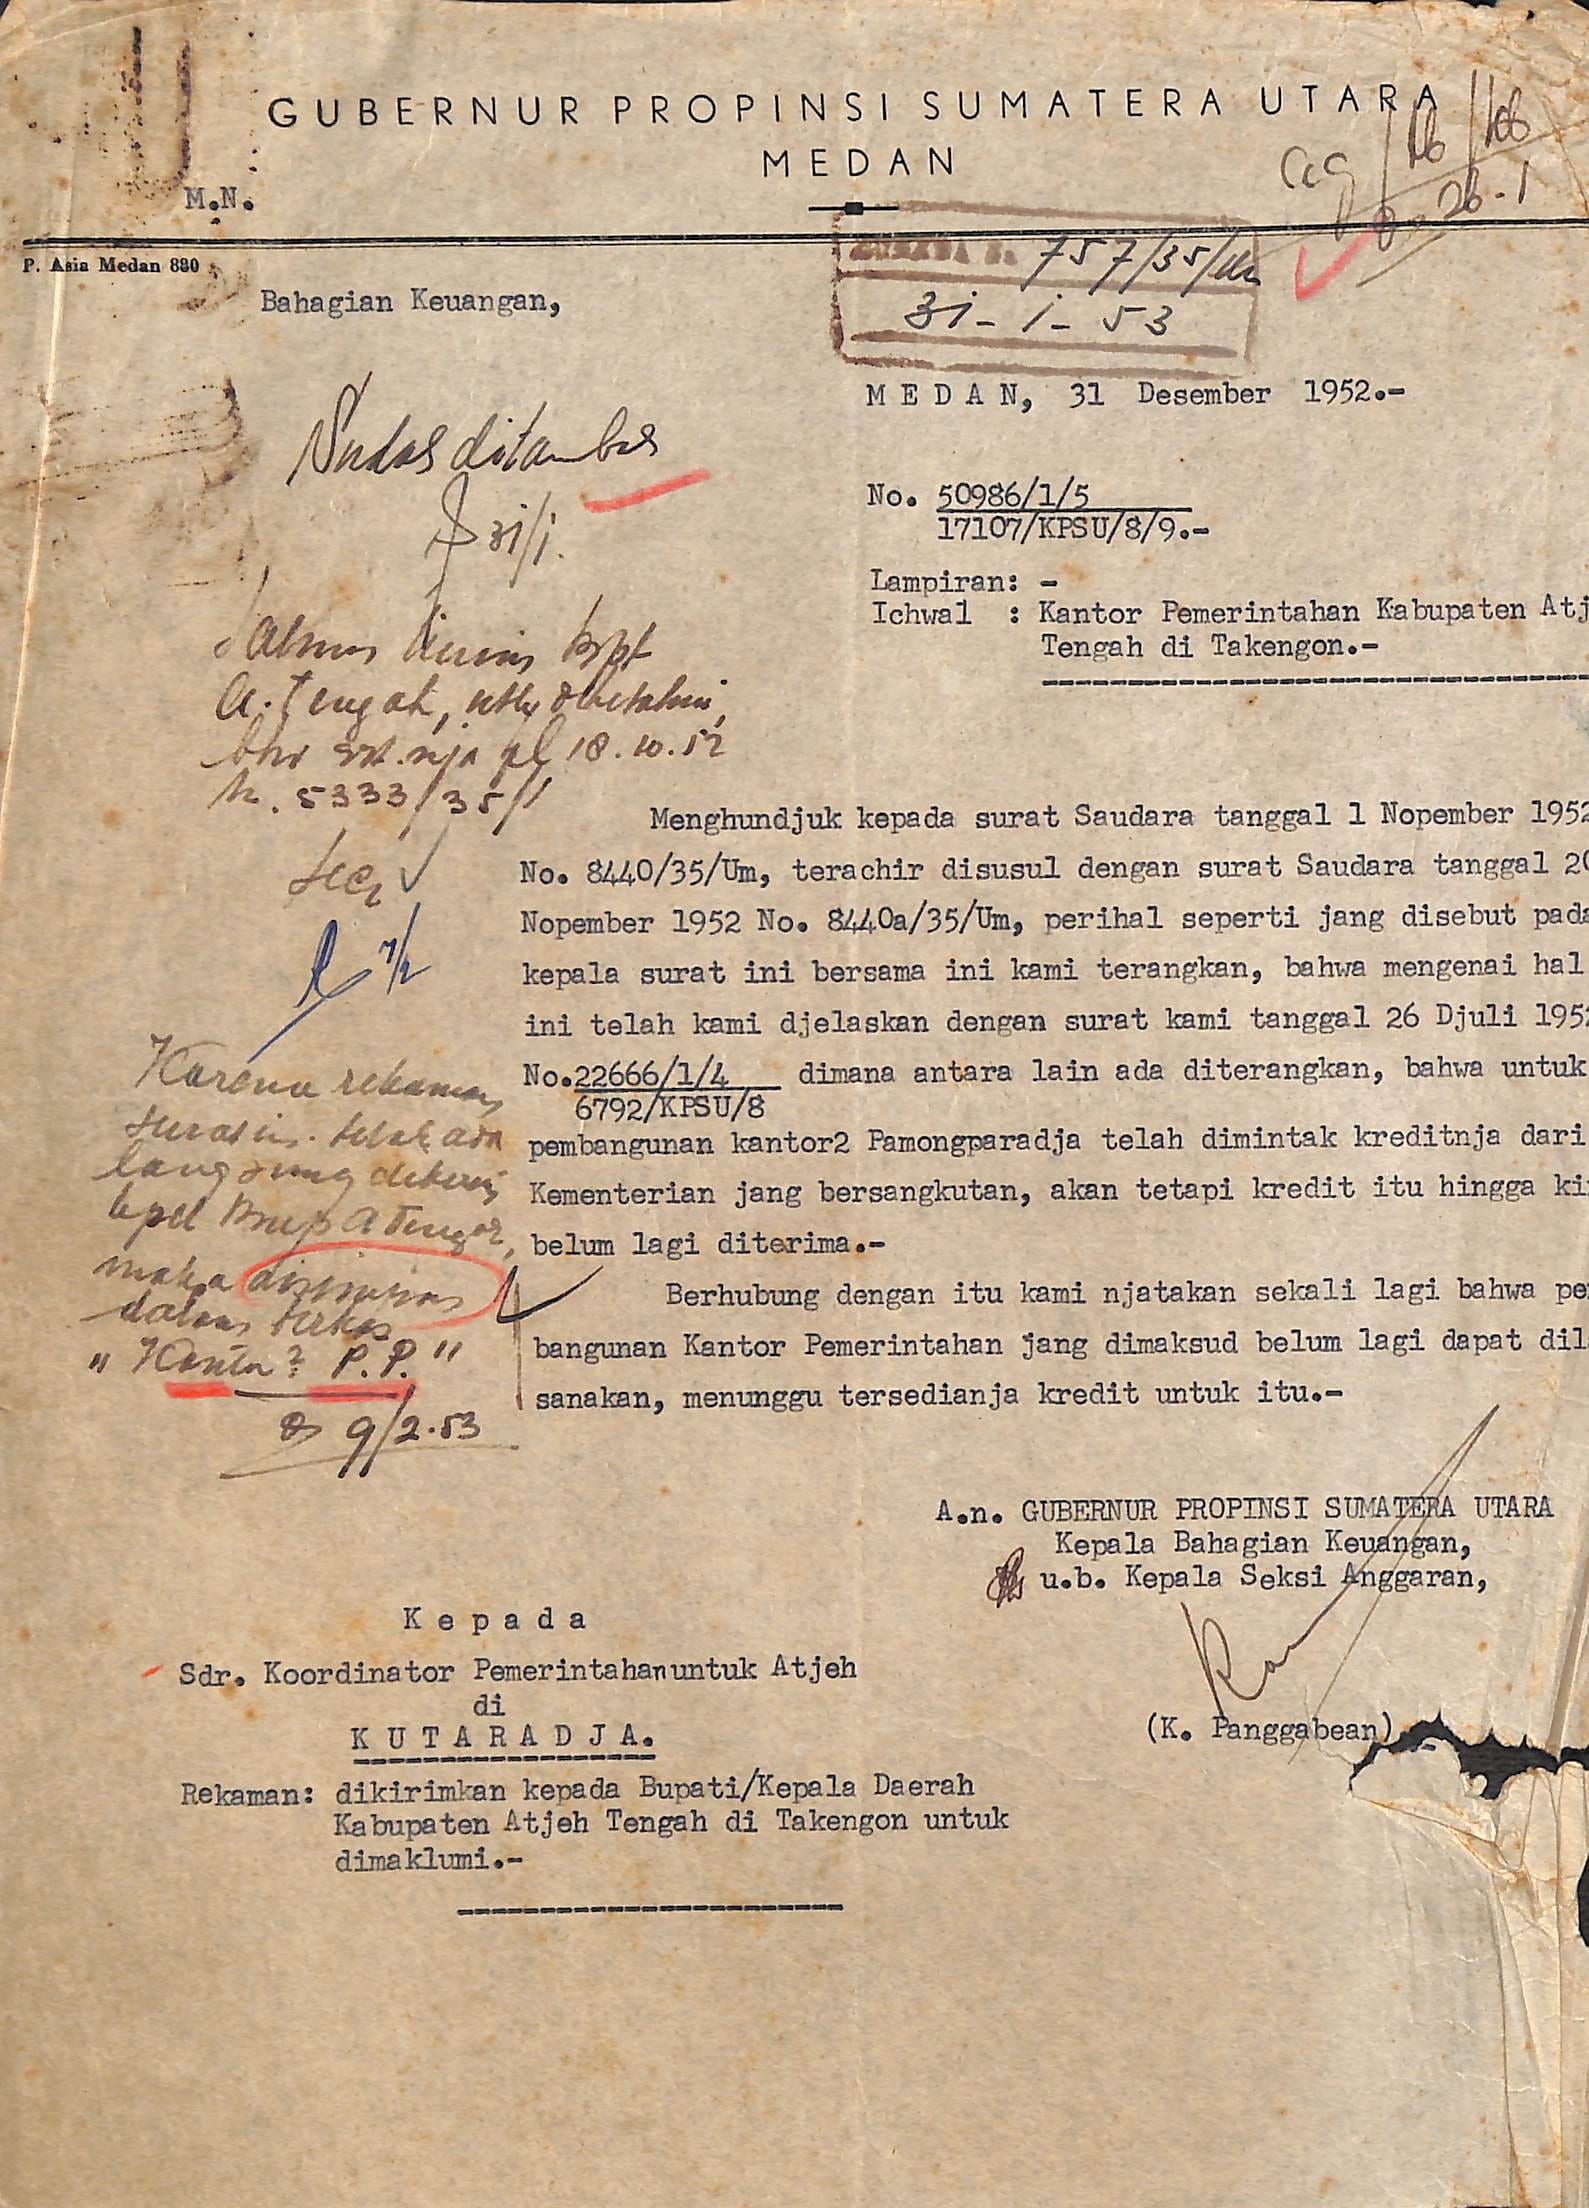 GUBERNUR PROPINSI SUMATERA UTARA
MEDAN
M.N.
P. Asia Medan 880
26-1
757/35/Um
31-1-53
Bahagian Keuangan,
MEDAN, 31 Desember 1952.-
31/1.
No. 50986/1/5
17107/KPSU/8/9.-
Lampiran: -
Ichwal : Kantor Pemerintahan Kabupaten Atj
Tengah di Takengon.-
A. Tengah,
18.10.52
5333/35/1
Menghundjuk kepada surat Saudara tanggal 1 Nopember 1952
No. 8440/35/Um, terachir disusul dengan surat Saudara tanggal 20
Nopember 1952 No. 8440a/35/Um, perihal seperti jang disebut pada
kepala surat ini bersama ini kami terangkan, bahwa mengenai hal
ini telah kami djelaskan dengan surat kami tanggal 26 Djuli 1952
No.22666/1/4 dimana antara lain ada diterangkan, bahwa untuk
6792/KPSU/8
pembangunan kantor2 Pamongparadja telah dimintak kreditnja dari
Kementerian jang bersangkutan, akan tetapi kredit itu hingga ki
belum lagi diterima.-
Berhubung dengan itu kami njatakan sekali lagi bahwa pe
bangunan Kantor Pemerintahan jang dimaksud belum lagi dapat dil
sanakan, menunggu tersedianja kredit untuk itu.-
7/2
Karena rekaman
surat ini telah ada
langsung dikirim
kpd Bup A Tengah,
maka disimpan
dalam berkas
"Kantor2 P.P."
9/2.53
A.n. GUBERNUR PROPINSI SUMATERA UTARA
Kepala Bahagian Keuangan,
u.b. Kepala Seksi Anggaran,
(K. Panggabean)
Kepada
Sdr. Koordinator Pemerintahan untuk Atjeh
di
KUTARADJA.
Rekaman: dikirimkan kepada Bupati/Kepala Daerah
Kabupaten Atjeh Tengah di Takengon untuk
dimaklumi.-